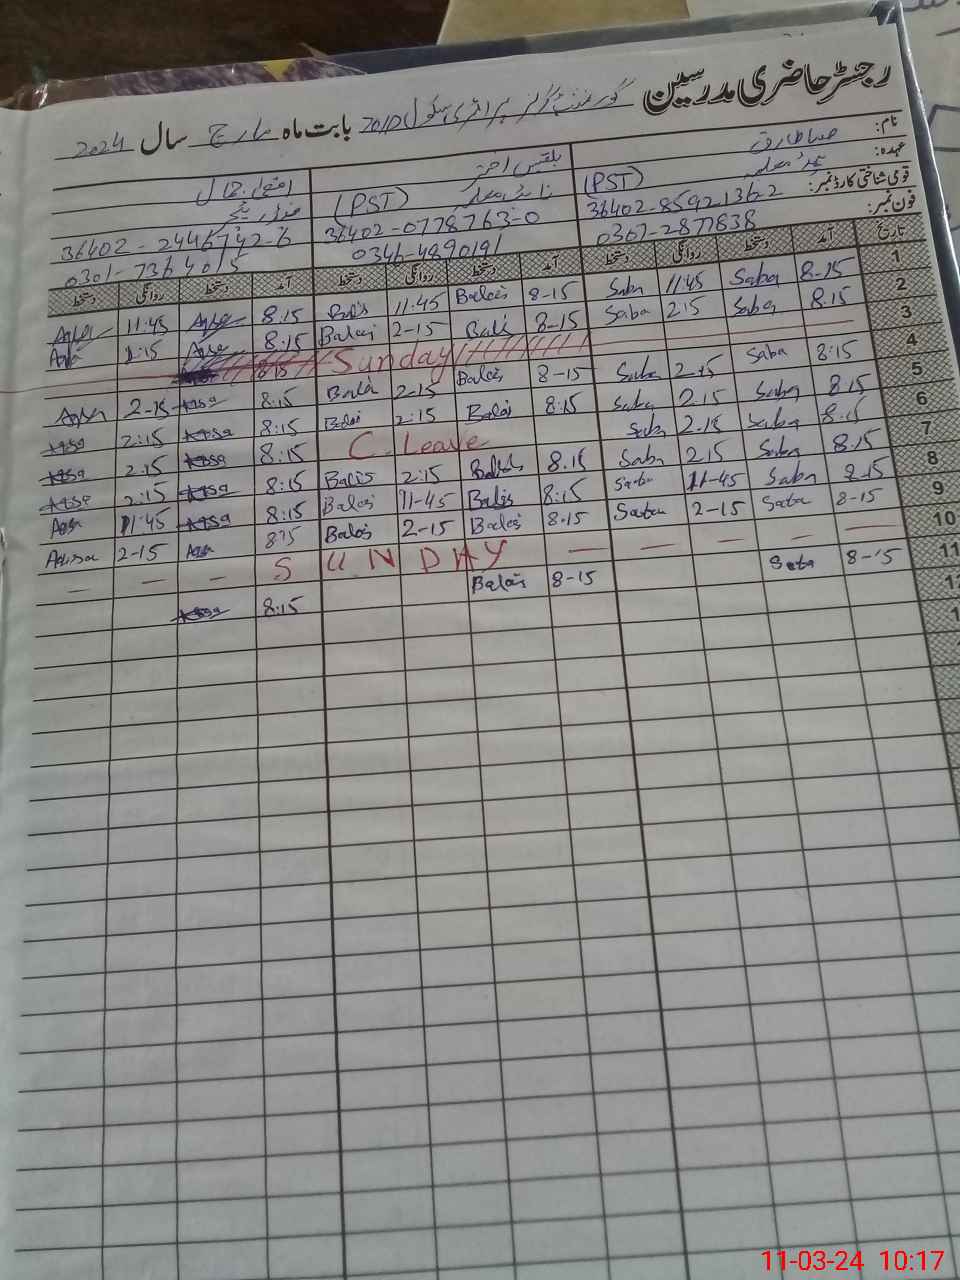 رجسٹر حاضری مدرسین گورنمنٹ گرلز پرائمری سکول 20/D بابت ماہ مارچ سال 2024
نام: صبا طارق بلقیس اختر
عہدہ: (PST) (PST)
قومی شناختی کارڈ نمبر: 36402-8592136-2 36402-0778763-0 36402-2446742-6
فون نمبر: 0307-2877838 0346-4890191 0301-7364015
تاریخ آمد دستخط روانگی دستخط آمد دستخط روانگی دستخط آمد دستخط روانگی دستخط
1 8-15 Saba 11:45 Saba 8-15 Balqis 11:45 Balis 8.15 Aqsa 11:45 Aqsa
2 8.15 Saba 2.15 Saba 8-15 Balis 2-15 Balqis 8:15 Aqsa Aqsa
3 Sunday
4 8:15 Saba 2-15 Saba 8-15 Balqis 2-15 Balis 8:15 Aqsa 2-15 Aqsa
5 8.15 Saba 2.15 Saba 8:15 Balqis 2:15 Balqis 8:15 Aqsa 2:15 Aqsa
6 8.15 Saba 2.15 Saba C. Leave 8:15 Aqsa 2.15 Aqsa
7 8.15 Saba 2.15 Saba 8.15 Balqis 2:15 Balis 8:15 Aqsa 2:15 Aqsa
8 8.15 Saba 11-45 Saba 8:15 Balis 11-45 Balqis 8:15 Aqsa 11:45 Aqsa
9 8-15 Saba 2-15 Saba 8.15 Balqis 2-15 Balqis 8:15 Aqsa 2-15 Aqsa
10 SUNDAY
11 8-15 Saba 8-15 Balqis 8:15 Aqsa
11-03-24 10:17